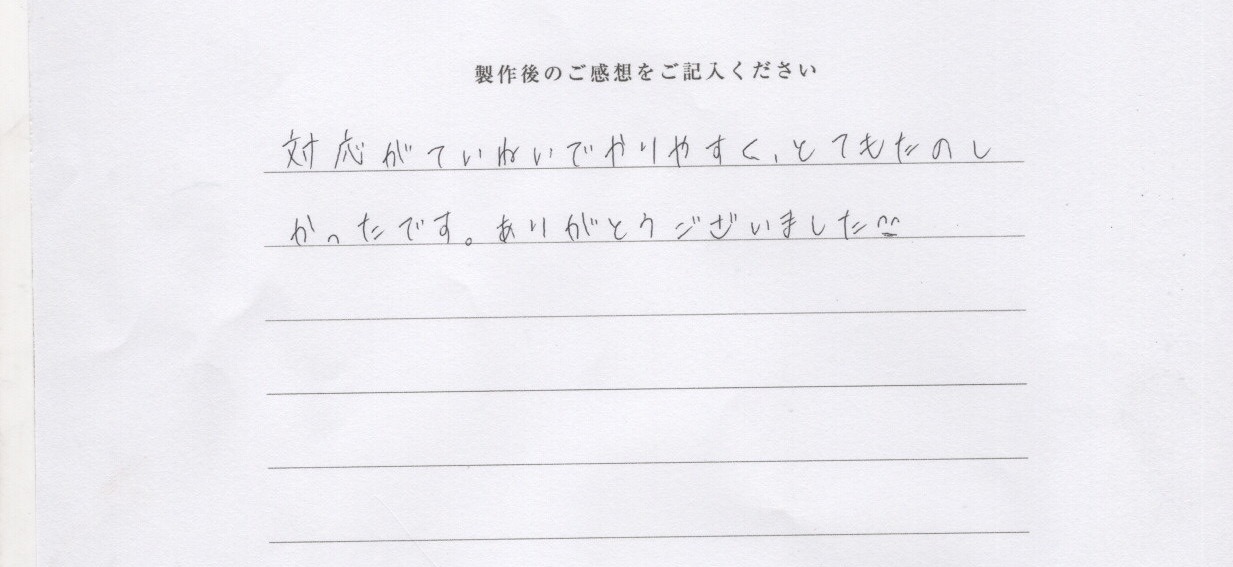 製作後のご感想をご記入ください
対応がていねいでやりやすく、とてもたのし
かったです。ありがとうございました